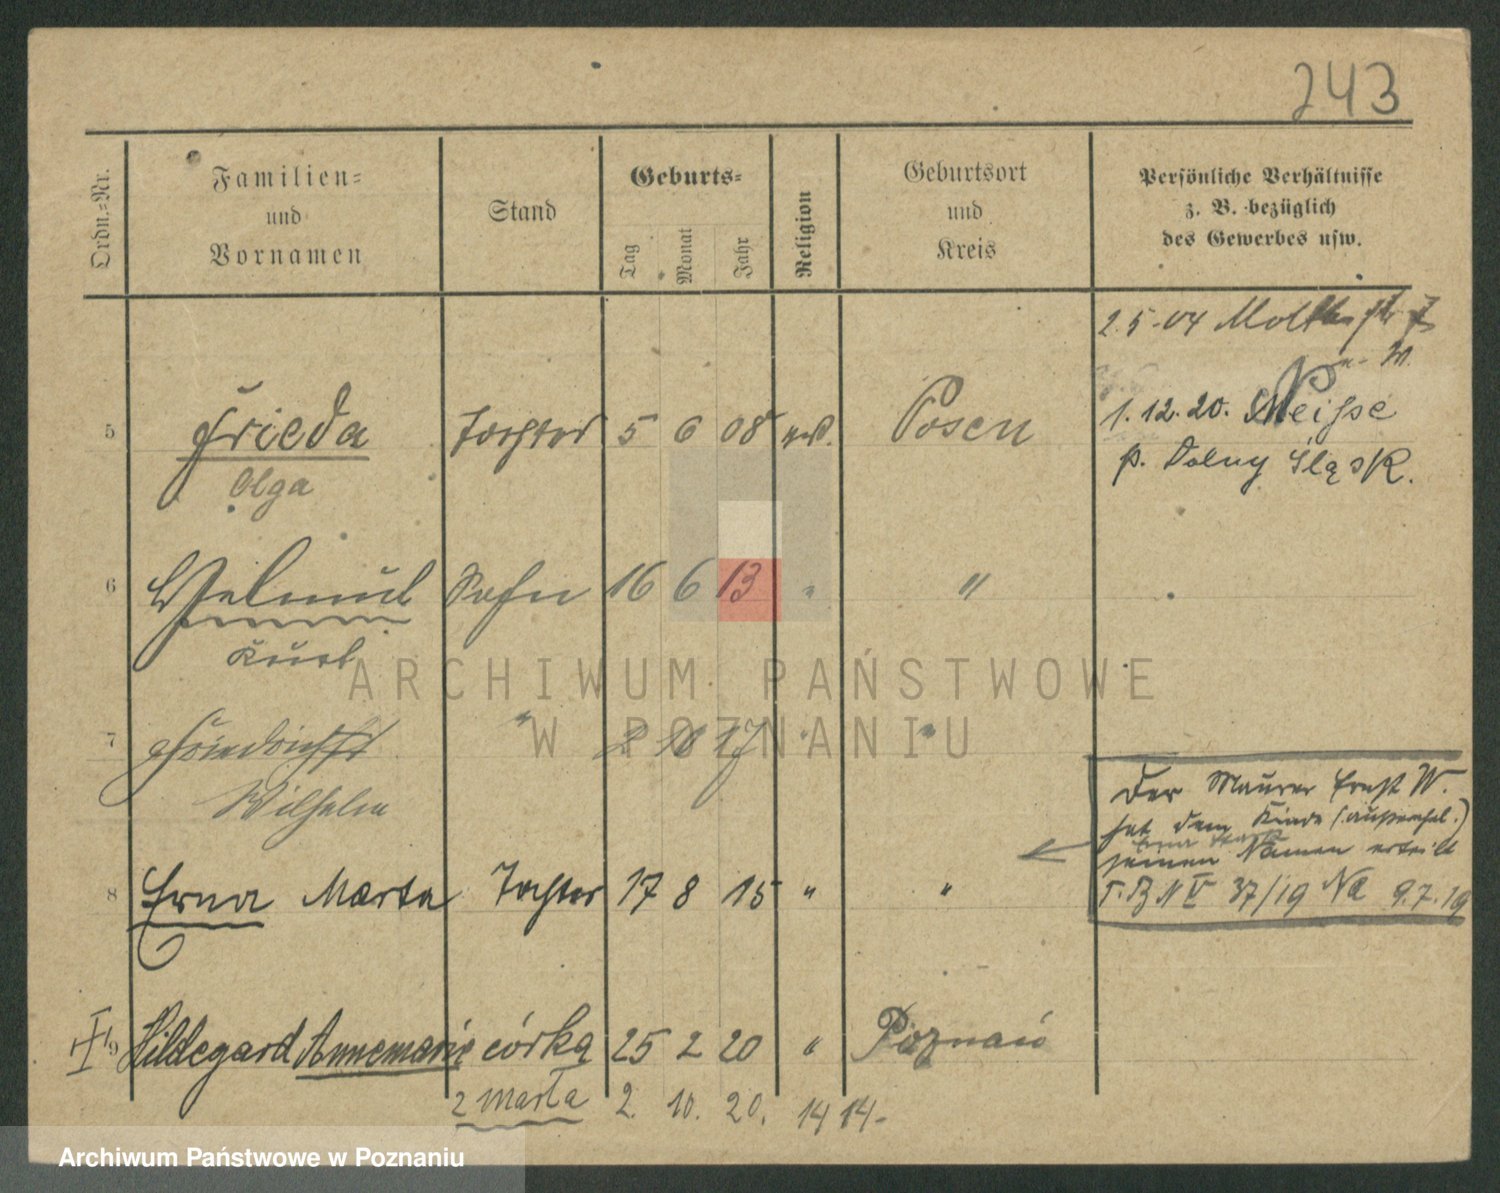 243
Ordn.-Nr.
Familien-
und
Vornamen
Stand
Geburts-
Tag
Monat
Jahr
Religion
Geburtsort
und
Kreis
Persönliche Verhältnisse
z. B. bezüglich
des Gewerbes usw.
2.5.04
5 Frieda Tochter 5 6 08 Posen 1.12.20. Neisse
Olga p. Dolny Śląsk.
6 Helmut Sohn 16 6 13 " "
Kurt
7 Friedrich " 17 " "
Wilhelm
Der Maurer Ernst W.
hat dem Kinde (außerehel.)
seinen Namen erteilt
37/19 9.7.19
8 Erna Marta Tochter 17 8 15 " "
9 Hildegard Annemarie córka 25 2 20 " Poznań
z marła 2. 10. 20. 14 14-
ARCHIWUM PAŃSTWOWE
W POZNANIU
Archiwum Państwowe w Poznaniu